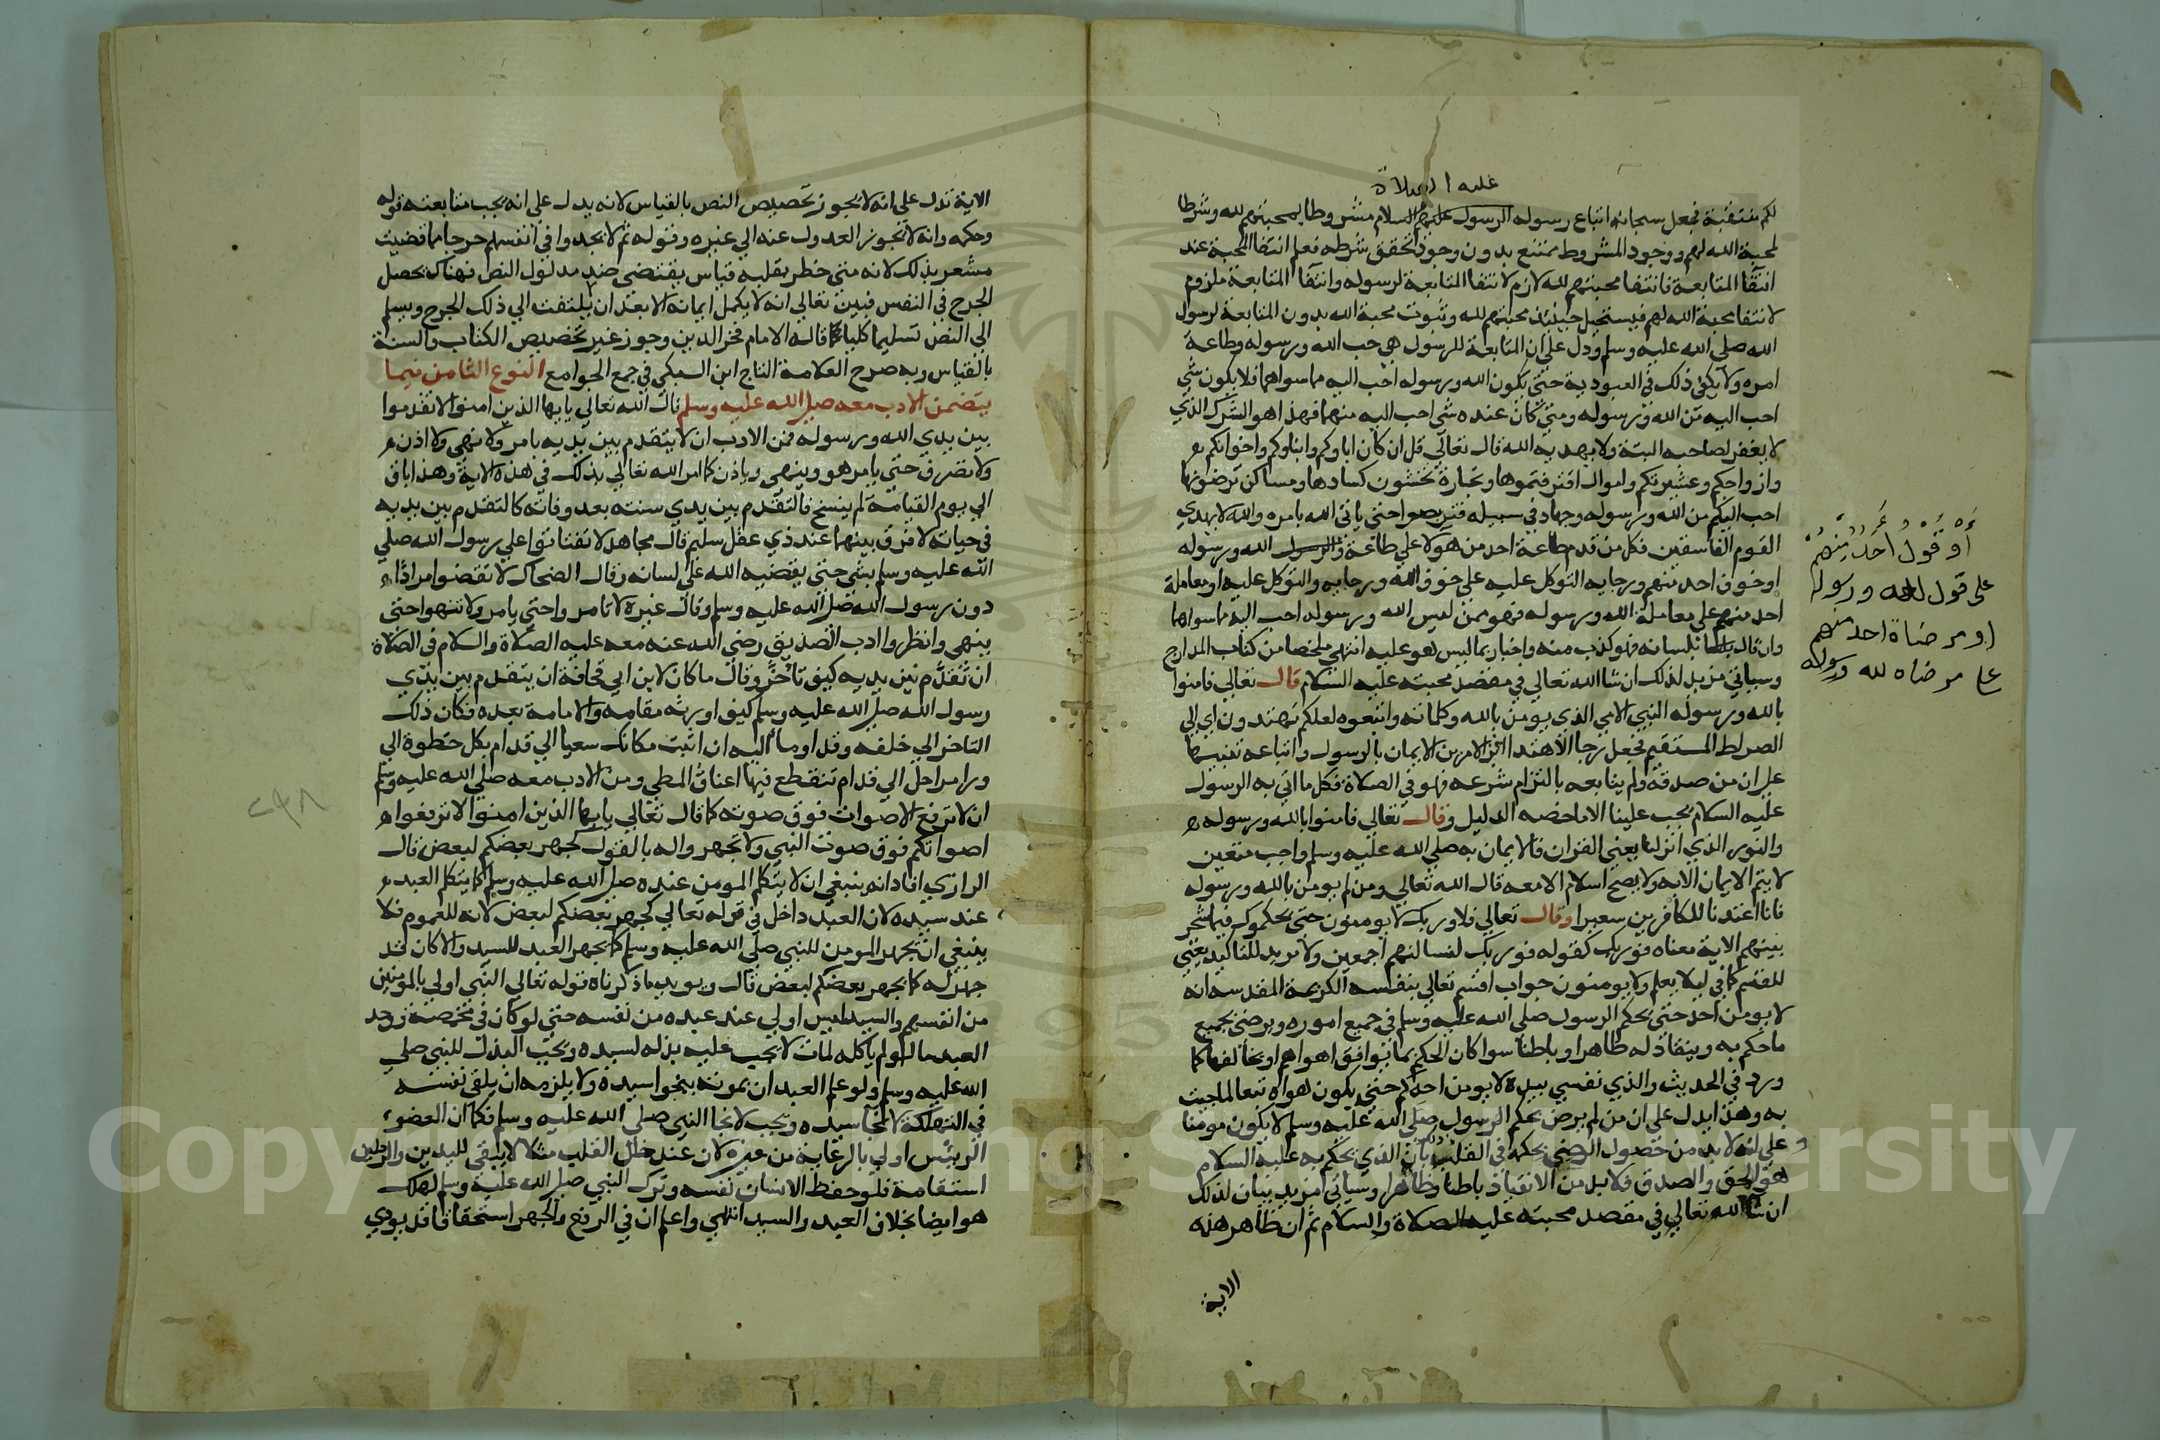 عليه الصلاة
لكم منتفية فجعل سبحانه اتباع رسوله الرسول عليهم السلام مشروطا بمحبتهم لله وشرطا
لمحبة الله لهم ووجود المشروط ممتنع بدون وجود تحقق شرطه فعلم انتفا المحبة عند
انتفا المتابعة فانتفا محبتهم لله لازم لانتفا المتابعة لرسوله وانتفا المتابعة ملزوم
لانتفا محبة الله لهم فيستحيل حينئذ محبتهم لله وثبوت محبة الله بدون المتابعة لرسول
الله صلي الله عليه وسلم ودل علي ان المتابعة للرسول هي حب الله ورسوله وطاعة
امره ولا يكفي ذلك في العبودية حتي يكون الله ورسوله احب اليه مما سواهما فلا يكون شي
احب اليه من الله ورسوله ومتي كان عنده شي احب اليه منهما فهذا هو الشرك الذي
لا يغفر لصاحبه البتة ولا يهديه الله قال تعالي قل ان كان اباوكم وابناوكم واخوانكم
وازواجكم وعشيرتكم واموال اقترفتموها وتجارة تخشون كسادها ومساكن ترضونها
احب اليكم من الله ورسوله وجهاد في سبيله فتربصوا حتي ياتي الله بامره والله لا يهدي
القوم الفاسقين فكل من قدم طاعة احد من هولا علي طاعة الله ورسوله
او خوف احد منهم ورجايه التوكل عليه علي خوف الله ورجايه والتوكل عليه او معاملة
احد منهم علي معاملة الله ورسوله فهو ممن ليس الله ورسوله احب اليه مما سواهما
وان قال بلسانه فهو كذب منه واخبار بما ليس هو عليه انتهي ملخصا من كتاب المدارج
وسياتي مزيد لذلك ان شا الله تعالي في مقصد محبته عليه السلام قال تعالي فامنوا
بالله ورسوله النبي الامي الذي يومن بالله وكلماته واتبعوه لعلكم تهتدون اي الي
الصراط المستقيم فجعل رجا الاهتدا اثر الامرين الايمان بالرسول واتباعه تنبيها
علي ان من صدقه ولم يتابعه بالتزام شرعه فهو في الصلاة فكل ما اتي به الرسول
عليه السلام يجب علينا الا ما خصه الدليل وقال تعالي فامنوا بالله ورسوله
والنور الذي انزلنا يعني القران فالايمان به صلي الله عليه وسلم واجب متعين
لا يتم الايمان الا به ولا يصح اسلام الا معه قال الله تعالي ومن لم يومن بالله ورسوله
فانا اعتدنا للكافرين سعيرا وقال تعالي فلا وربك لا يومنون حتي يحكموك فيما شجر
بينهم الاية معناه فوربك كقوله فوربك لنسالنهم اجمعين ولا مزيد للتاكيد يعني
للقسم كما في ليلا يعلم ولا يومنون جواب اقسم تعالي بنفسه الكريمة المقدسة انه
لا يومن احد حتي يحكم الرسول صلي الله عليه وسلم في جميع اموره ويرضي بجميع
ما حكم به وينقاد له ظاهرا وباطنا سوا كان الحكم بما يوافق اهواهم او يخالفها كما
ورد في الحديث والذي نفسي بيده لا يومن احدكم حتي يكون هواه تبعا لما جيت
به وهذا يدل علي ان من لم يرض بحكم الرسول صلي الله عليه وسلم لا يكون مومنا
وعلي انه لا بد من حصول الرضي بحكمه في القلب بان الذي يحكم به عليه السلام
هو الحق والصدق فلا بد من الانقياد باطنا وظاهرا وسياتي مزيد بيان لذلك
ان شا الله تعالي في مقصد محبته عليه الصلاة والسلام ثم ان ظاهر هذه
الاية
أو قول أحد منهم
على قول الله ورسوله
او مرضاة احد منهم
على مرضاه لله ورسوله
الاية تدل علي انه لا يجوز تخصيص النص بالقياس لانه يدل علي انه يجب متابعته قوله
وحكمه وانه لا يجوز العدول عنه الي غيره وقوله ثم لا يجدوا في انفسهم حرجا مما قضيت
مشعر بذلك لانه متي خطر بقلبه قياس يقتضي ضد مدلول النص فهناك يحصل
الحرج في النفس فبين تعالي انه لا يكمل ايمانه الا بعد ان يلتفت الي ذلك الحرج ويسلم
الي النص تسليما كليا كما قاله الامام فخر الدين وجوز غيره تخصيص الكتاب والسنة
بالقياس وبه صرح العلامة التاج ابن السبكي في جمع الجوامع النوع الثامن فيما
يتضمن الادب معه صلي الله عليه وسلم قال الله تعالي يا يها الذين امنوا لا تقدموا
بين يدي الله ورسوله فمن الادب ان لا يتقدم بين يديه بامر ولا نهي ولا اذن
ولا تصرف حتي يامر هو وينهي وياذن كما امر الله تعالي بذلك في هذه الاية وهذا باق
الي يوم القيامة لم ينسخ فالتقدم بين يدي سنته بعد وفاته كالتقدم بين يديه
في حياته لا فرق بينهما عند ذي عقل سليم قال مجاهد لا تفتاتوا علي رسول الله صلي
الله عليه وسلم بشي حتي يقضيه الله علي لسانه وقال الضحاك لا تقضوا امرا
دون رسول الله صلي الله عليه وسلم وقال غيره لا تامروا حتي يامر ولا تنهوا حتي
ينهي وانظروا ادب الصديق رضي الله عنه معه عليه الصلاة والسلام في الصلاة
ان تقدم بين يديه كيف تاخر وقال ما كان لابن ابي قحافة ان يتقدم بين يدي
رسول الله صلي الله عليه وسلم كيف اورثه مقامه والامامة بعده فكان ذلك
التاخر الي خلفه وقد اوما اليه ان اثبت مكانك سعيا الي قدام بكل خطوة الي
ورا مراحل الي قدام تنقطع فيها اعناق المطي ومن الادب معه صلي الله عليه وسلم
ان لا ترفع الاصوات فوق صوته كما قال تعالي يا يها الذين امنوا لا ترفعوا
اصواتكم فوق صوت النبي ولا تجهروا له بالقول كجهر بعضكم لبعض قال
الرازي افاد انه ينبغي ان لا يتكلم المومن عنده صلي الله عليه وسلم كما يتكلم العبد
عند سيده لان العبد داخل في قوله تعالي كجهر بعضكم لبعض لانه للعموم فلا
ينبغي ان يجهر المومن للنبي صلي الله عليه وسلم كما يجهر العبد للسيد والا كان قد
جهر له كما يجهر بعضكم لبعض قال ويويد ما ذكرناه قوله تعالي النبي اولي بالمومنين
من انفسهم والسيد ليس اولي عند عبده من نفسه حتي لو كان في مخمصة ووجد
العبد ما لو لم ياكله لمات لا يجب عليه بذله لسيده ويجب البذل للنبي صلي
الله عليه وسلم ولو علم العبد ان بموته ينجوا سيده ولا يلزمه ان يلقي نفسه
في التهلكة لانجا سيده ويجب لانجا النبي صلي الله عليه وسلم فكما ان العضو
الرييس اولي بالرعاية من غيره لان عند خلل القلب مثلا لا يبقي لليدين والرجلين
استقامة فلو حفظ الانسان نفسه وترك النبي صلي الله عليه وسلم لهلك
هو ايضا بخلاف العبد والسيد انتهي واعلم ان في الرفع والجهر استخفافا قد يودي
Copyright © King Saud University